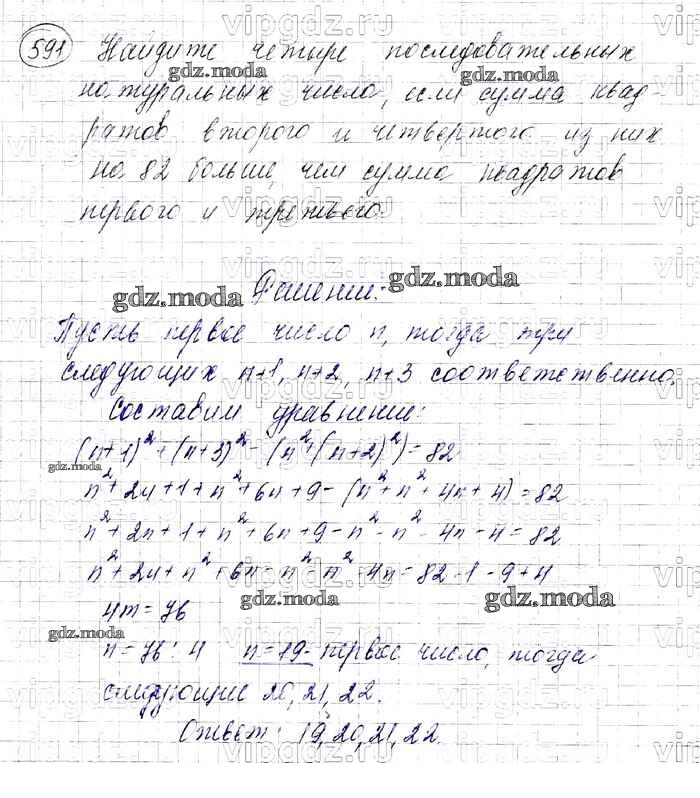 591 Найдите четыре последовательных
натуральных числа, если сумма квад-
ратов второго и четвертого из них
на 82 больше, чем сумма квадратов
первого и третьего.
Решение:
Пусть первое число n, тогда три
следующих n+1, n+2, n+3 соответственно.
Составим уравнение:
(n+1)²+(n+3)²-(n²+(n+2)²)=82
n²+2n+1+n²+6n+9-(n²+n²+4n+4)=82
n²+2n+1+n²+6n+9-n²-n²-4n-4=82
n²+2n+n²+6n-n²-n²-4n=82-1-9+4
4n=76
n=76:4 n=19- первое число, тогда
следующие 20,21,22.
Ответ: 19,20,21,22.
vipgdz.ru
gdz.moda